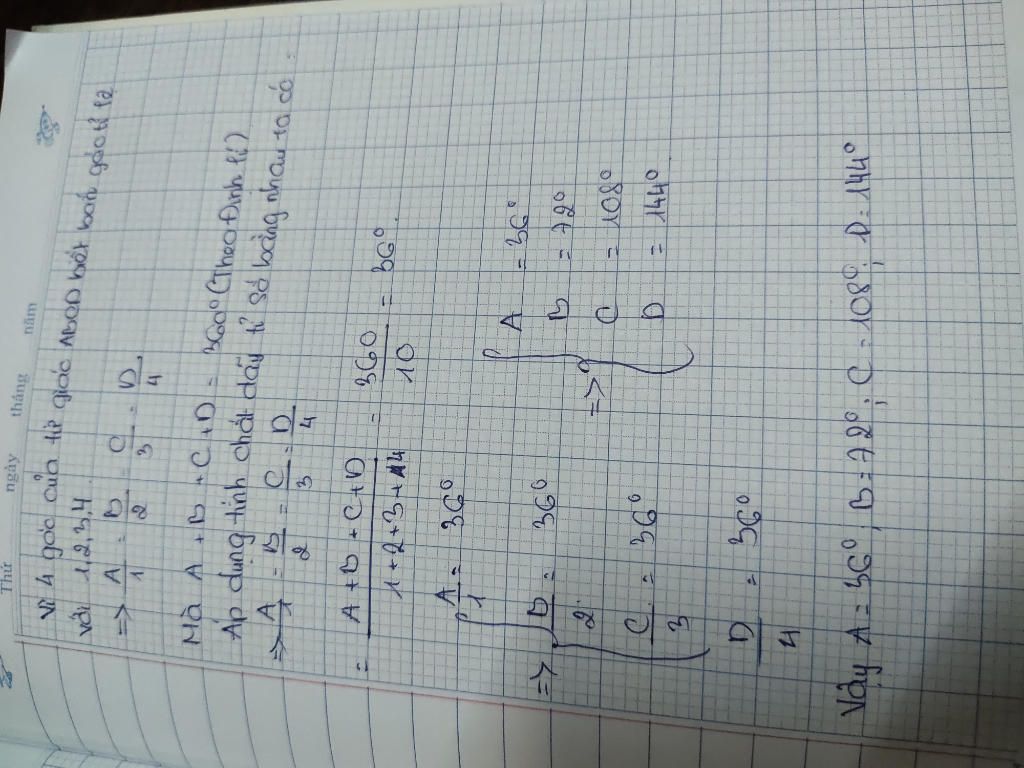 Thứ ngày tháng năm
Vì 4 góc của tứ giác ABCD biết bốn góc tỉ lệ
với 1,2,3,4
=> A/1 = B/2 = C/3 = D/4
Mà A + B + C + D = 360° (Theo Định lí)
Áp dụng tính chất dãy tỉ số bằng nhau ta có :
=> A/1 = B/2 = C/3 = D/4
= A + B + C + D / 1 + 2 + 3 + 4 = 360/10 = 36°.
=> { A/1 = 36°
B/2 = 36°
C/3 = 36°
D/4 = 36°
=> { A = 36°
B = 72°
C = 108°
D = 144°
Vậy A = 36° ; B = 72° ; C = 108° ; D = 144°